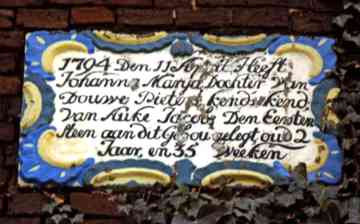 1794 Den 11 Heeft
Johanna Marya Dochter Van
Douwe Pieters kendsekend
Van Auke Jacobs Den Eersten
Steen aan dit Gebou gelegt oud 2
Jaar, en 35 Weeken